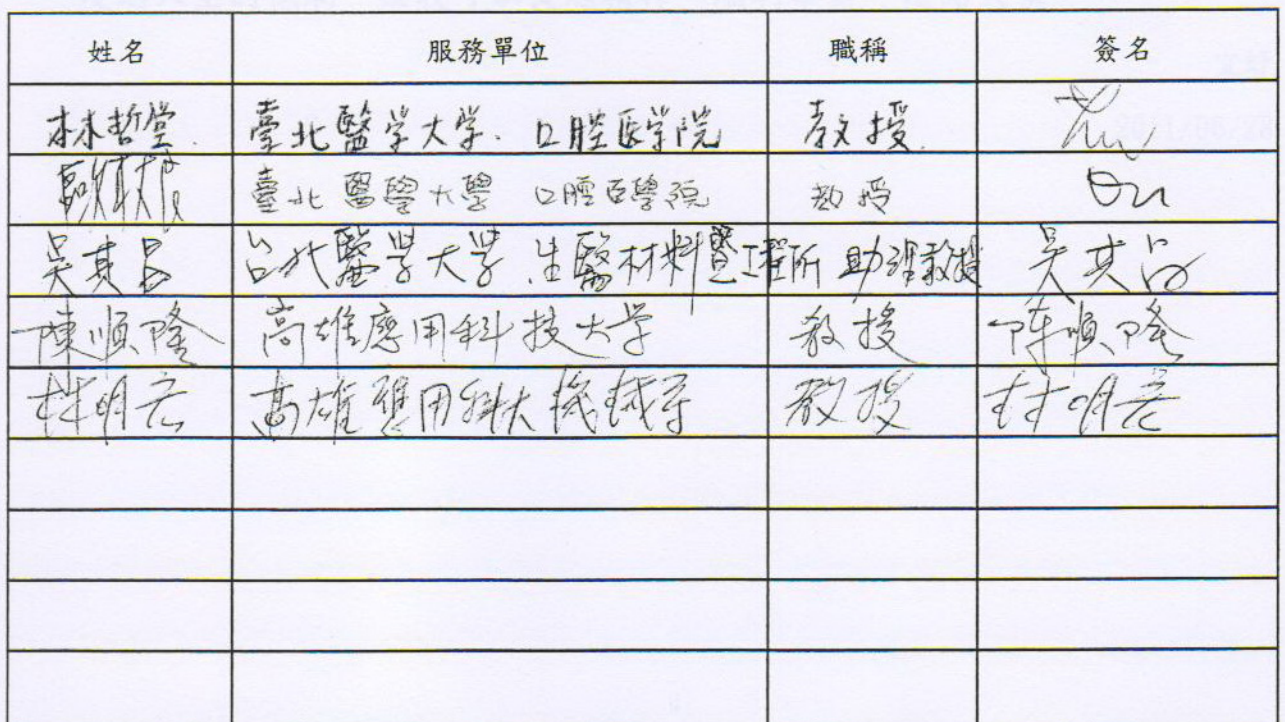 姓名 服務單位 職稱 簽名
林哲堂. 臺北醫学大学. 口腔医学院 教授.
臺北醫學大學 口腔醫學院 教授 Ou
吳其昌 台北醫學大學 生醫材料暨工程所 助理教授 吳其昌
陳順隆 高雄應用科技大学 教授 陈順隆
林明宏 高雄應用科大機械系 教授 林明宏
2011/06/28